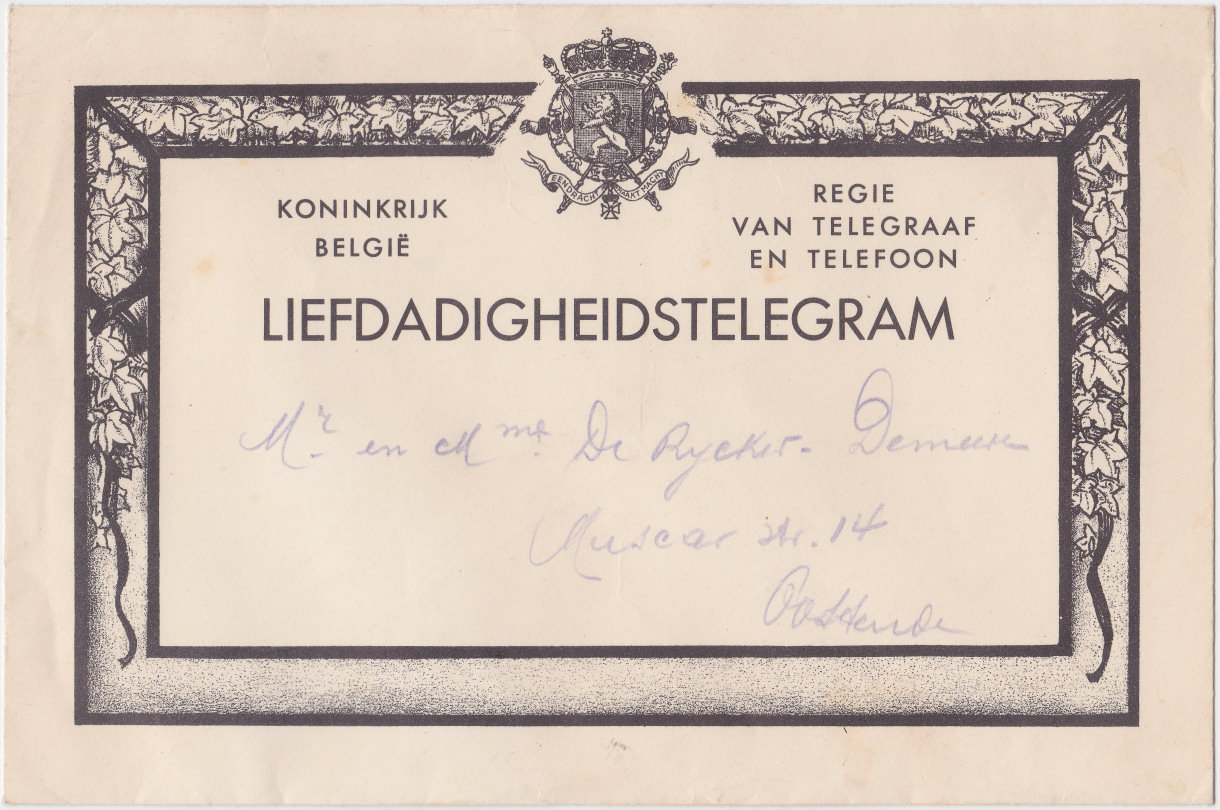 EENDRACHT MAAKT MACHT
KONINKRIJK
BELGIË
REGIE
VAN TELEGRAAF
EN TELEFOON
LIEFDADIGHEIDSTELEGRAM
Mr. en Mme. De Rycker - Demeure
Muscar str. 14
Oostende